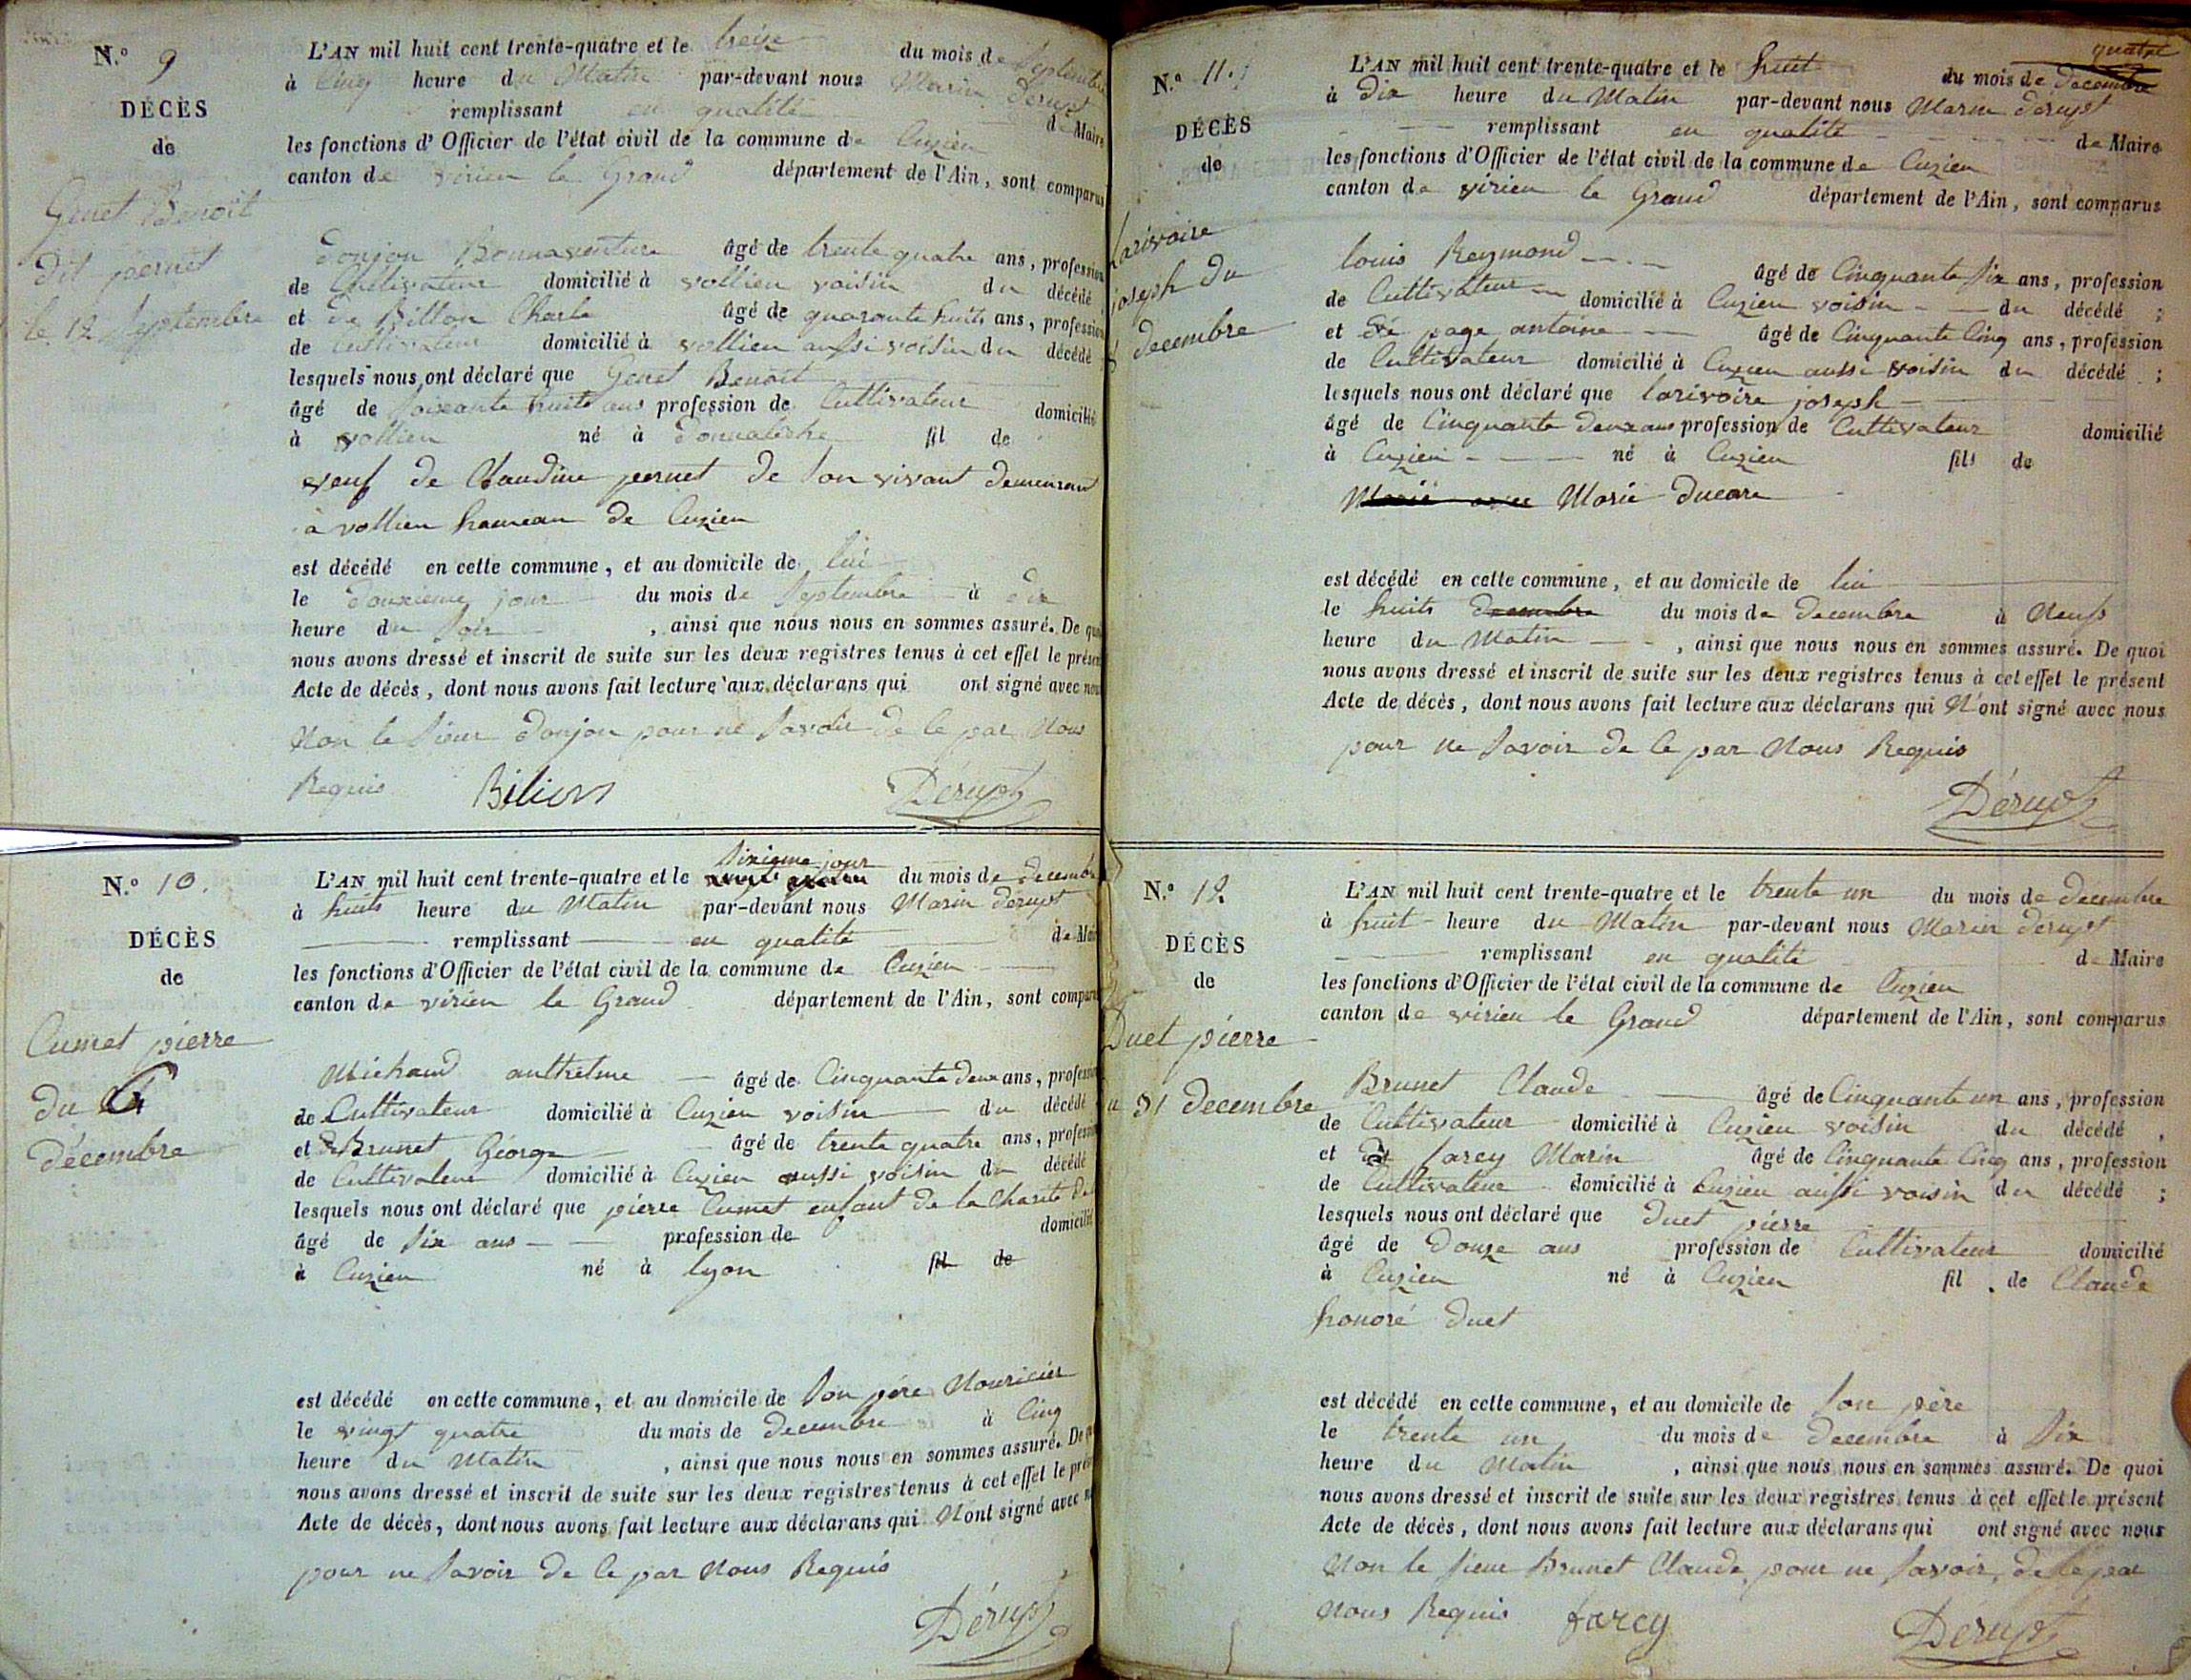 N.° 9
DÉCÈS
de
Genet Benoit
dit pernet
le 12 Septembre
L'AN mil huit cent trente-quatre et le treize du mois de Septembre
à Cinq heure du Matin par-devant nous Marin Derupt
remplissant en qualité de Maire
les fonctions d'Officier de l'état civil de la commune de Cuzieu
canton de virieu le Grand département de l'Ain, sont comparus
Donjon Bonnaventure âgé de trente quatre ans, profession
de Cultivateur domicilié à vollien voisin du décédé
et de Billon Charle âgé de quarante huits ans, profession
de cultivateur domicilié à vollien aussi voisin du décédé
lesquels nous ont déclaré que Genet Benoit
âgé de soixante huits ans profession de Cultivateur domicilié
à vollien né à fil de
veuf de Claudine pernet de son vivant demeurant
à vollien hameau de Cuzieu
est décédé en cette commune, et au domicile de lui
le douxieme jour du mois de Septembre à dix
heure du Soir, ainsi que nous nous en sommes assuré. De quoi
nous avons dressé et inscrit de suite sur les deux registres tenus à cet effet le présent
Acte de décès, dont nous avons fait lecture aux déclarans qui ont signé avec nous
Non le sieur Donjon pour ne savoir de ce par Nous
Requis Bilion Dérupt
N.° 10.
DÉCÈS
de
Cumet pierre
du 6
décembre
L'AN mil huit cent trente-quatre et le Sixieme jour du mois de decembre
à huits heure du Matin par-devant nous Marin Derupt
remplissant en qualité de Maire
les fonctions d'Officier de l'état civil de la commune de Cuzieu
canton de virieu le Grand département de l'Ain, sont comparus
Michaud anthelme âgé de Cinquante deux ans, profession
de Cultivateur domicilié à Cuzieu voisin du décédé
et Brunet Géorge âgé de trente quatre ans, profession
de Cultivateur domicilié à Cuzieu aussi voisin du décédé
lesquels nous ont déclaré que pierre Cumet enfant de la Charité de
âgé de six ans profession de domicilié
à Cuzieu né à lyon fil de
est décédé en cette commune, et au domicile de son père Nouricier
le vingt quatre du mois de decembre à Cinq
heure du Matin, ainsi que nous nous en sommes assuré. De quoi
nous avons dressé et inscrit de suite sur les deux registres tenus à cet effet le présent
Acte de décès, dont nous avons fait lecture aux déclarans qui N'ont signé avec nous
pour ne savoir de ce par Nous Requis
Dérupt
N.° 11.
DÉCÈS
de
larivoire
joseph du
decembre
quatre
L'AN mil huit cent trente-quatre et le huit du mois de decembre
à Dix heure du Matin par-devant nous Marin Derupt
remplissant en qualité de Maire
les fonctions d'Officier de l'état civil de la commune de Cuzieu
canton de virieu le Grand département de l'Ain, sont comparus
louis Reymond âgé de Cinquante six ans, profession
de Cultivateur domicilié à Cuzieu voisin du décédé ;
et page antoine âgé de Cinquante Cinq ans, profession
de Cultivateur domicilié à Cuzieu aussi voisin du décédé ;
lesquels nous ont déclaré que larivoire joseph
âgé de Cinquante deux ans profession de Cultivateur domicilié
à Cuzieu né à Cuzieu fils de
Marié avec Marie Ducare
est décédé en cette commune, et au domicile de lui
le huits decembre du mois de decembre à Neufs
heure du Matin, ainsi que nous nous en sommes assuré. De quoi
nous avons dressé et inscrit de suite sur les deux registres tenus à cet effet le présent
Acte de décès, dont nous avons fait lecture aux déclarans qui N'ont signé avec nous
pour ne savoir de ce par Nous Requis
Dérupt
N.° 12
DÉCÈS
de
Duet pierre
du 31 decembre
L'AN mil huit cent trente-quatre et le trente un du mois de decembre
à huit heure du Matin par-devant nous Marin Derupt
remplissant en qualité de Maire
les fonctions d'Officier de l'état civil de la commune de Cuzieu
canton de virieu le Grand département de l'Ain, sont comparus
Brunet Claude âgé de Cinquante un ans, profession
de Cultivateur domicilié à Cuzieu voisin du décédé,
et farcy Marin âgé de Cinquante Cinq ans, profession
de Cultivateur domicilié à Cuzieu aussi voisin du décédé ;
lesquels nous ont déclaré que duet pierre
âgé de Douze ans profession de Cultivateur domicilié
à Cuzieu né à Cuzieu fil de Claude
honoré Duet
est décédé en cette commune, et au domicile de son père
le trente un du mois de decembre à Six
heure du Matin, ainsi que nous nous en sommes assuré. De quoi
nous avons dressé et inscrit de suite sur les deux registres tenus à cet effet le présent
Acte de décès, dont nous avons fait lecture aux déclarans qui ont signé avec nous
Non le sieur Brunet Claude pour ne savoir de ce par
Nous Requis farcy Dérupt